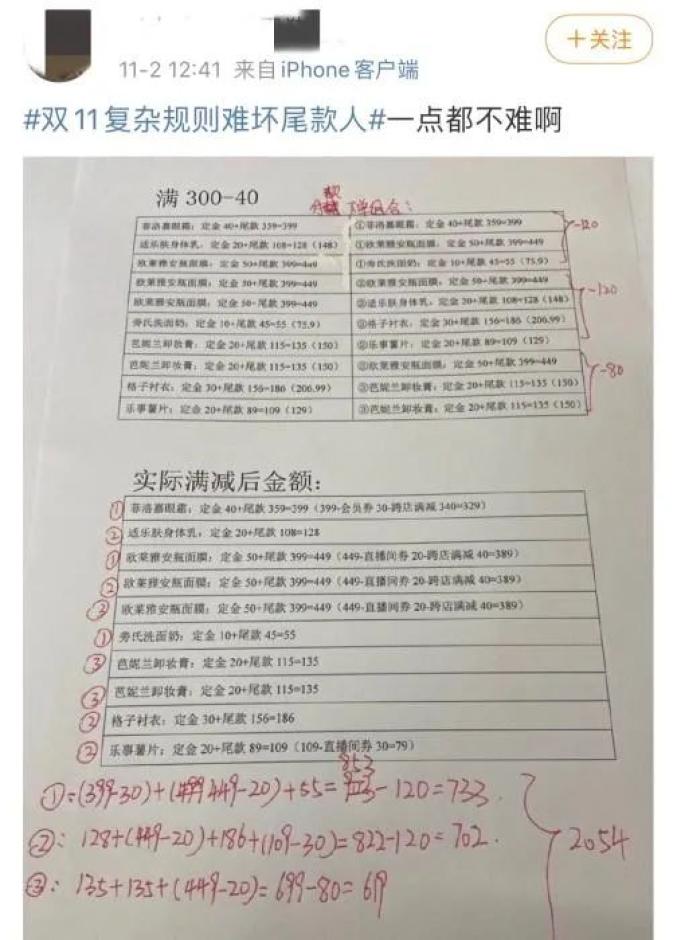 +关注
11-2 12:41 来自iPhone客户端
#双11复杂规则难坏尾款人#一点都不难啊
满 300-40
下单组合:
菲洛嘉眼霜:定金 40+尾款 359=399 ①菲洛嘉眼霜:定金 40+尾款 359=399
适乐肤身体乳,定金 20+尾款 108=128(148) ①欧莱雅安瓶面膜,定金 50+尾款 399=449
欧莱雅安瓶面膜:定金 50+尾款 399=449 ①旁氏洗面奶:定金 10+尾款 45=55(75.9)
-120
欧莱雅安瓶面膜:定金 50+尾款 399=449 ②欧莱雅安瓶面膜:定金 50+尾款 399=449
欧莱雅安瓶面膜:定金 50+尾款 399=449 ②适乐肤身体乳:定金 20+尾款 108=128(148)
旁氏洗面奶:定金 10+尾款 45=55(75.9) ②格子衬衣:定金 30+尾款 156=186(206.99)
芭妮兰卸妆膏:定金 20+尾款 115=135(150) ②乐事薯片:定金 20+尾款 89=109(129)
-120
芭妮兰卸妆膏:定金 20+尾款 115=135(150) ③欧莱雅安瓶面膜:定金 50+尾款 399=449
格子衬衣:定金 30+尾款 156=186(206.99) ③芭妮兰卸妆膏:定金 20+尾款 115=135(150)
乐事薯片:定金 20+尾款 89=109(129) ③芭妮兰卸妆膏:定金 20+尾款 115=135(150)
-80
实际满减后金额:
① 菲洛嘉眼霜:定金 40+尾款 359=399(399-会员券 30-跨店满减 340=329)
② 适乐肤身体乳,定金 20+尾款 108=128
① 欧莱雅安瓶面膜:定金 50+尾款 399=449(449-直播间券 20-跨店满减 40=389)
② 欧莱雅安瓶面膜:定金 50+尾款 399=449(449-直播间券 20-跨店满减 40=389)
③ 欧莱雅安瓶面膜:定金 50+尾款 399=449(449-直播间券 20-跨店满减 40=389)
① 旁氏洗面奶:定金 10+尾款 45=55
③ 芭妮兰卸妆膏:定金 20+尾款 115=135
③ 芭妮兰卸妆膏:定金 20+尾款 115=135
② 格子衬衣:定金 30+尾款 156=186
② 乐事薯片:定金 20+尾款 89=109(109-直播间券 30=79)
①=(399-30)+(449-20)+55=853-120=733.
②: 128+(449-20)+186+(109-30)=822-120=702.
③: 135+135+(449-20)=699-80=619
2054